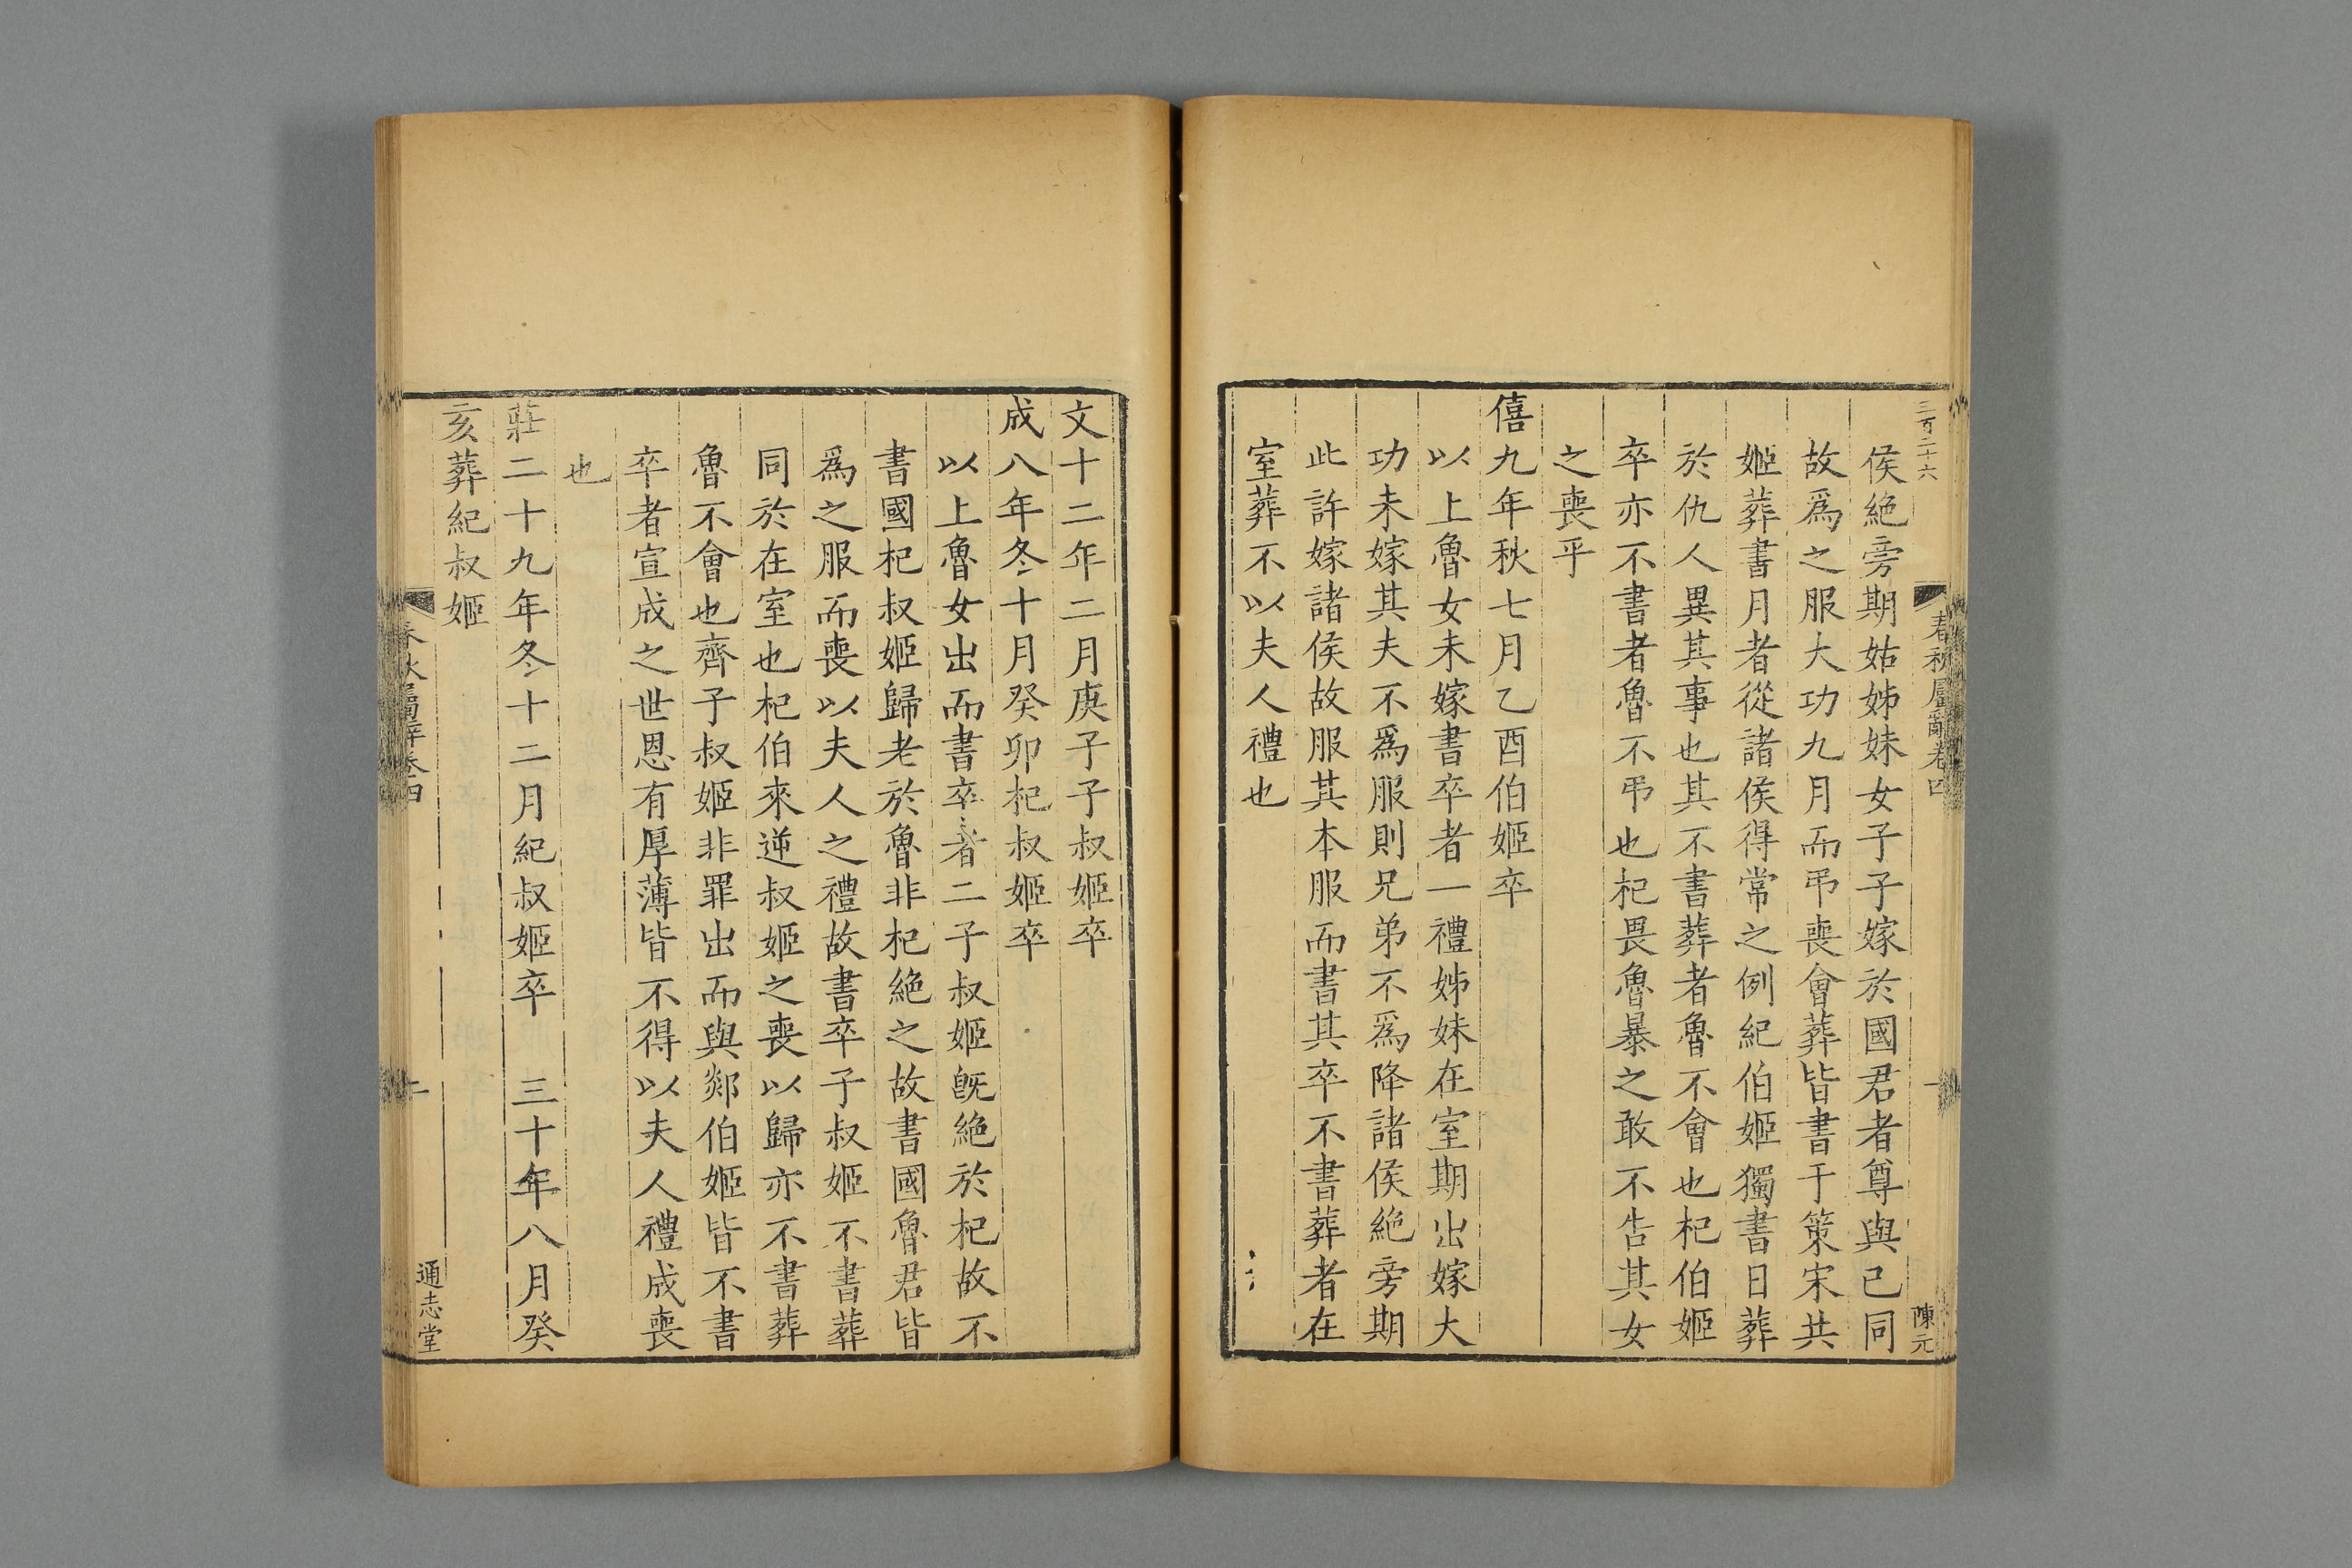 三百二十六
春秋屬辭卷四
一
陳元
侯絶旁期姑姊妹女子子嫁於國君者尊與己同
故爲之服大功九月而弔喪會葬皆書于策宋共
姬葬書月者從諸侯得常之例紀伯姬獨書日葬
於仇人異其事也其不書葬者魯不會也杞伯姬
卒亦不書者魯不弔也杞畏魯暴之敢不告其女
之喪乎
僖九年秋七月乙酉伯姬卒
以上魯女未嫁書卒者一禮姊妹在室期出嫁大
功未嫁其夫不爲服則兄弟不爲降諸侯絶旁期
此許嫁諸侯故服其本服而書其卒不書葬者在
室葬不以夫人禮也
文十二年二月庚子子叔姬卒
成八年冬十月癸卯杞叔姬卒
以上魯女出而書卒者二子叔姬旣絶於杞故不
書國杞叔姬歸老於魯非杞絶之故書國魯君皆
爲之服而喪以夫人之禮故書卒子叔姬不書葬
同於在室也杞伯來逆叔姬之喪以歸亦不書葬
魯不會也齊子叔姬非罪出而與郯伯姬皆不書
卒者宣成之世恩有厚薄皆不得以夫人禮成喪
也
莊二十九年冬十二月紀叔姬卒　三十年八月癸
亥葬紀叔姬
春秋屬辭卷四
一
通志堂